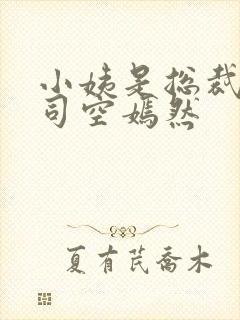 小姨是总裁
司空嫣然
夏有芪乔木